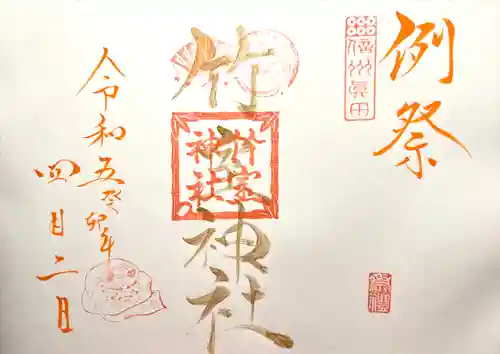 例祭
信州眞田
竹室神社
竹室
神社
令和五癸卯年
四月二日